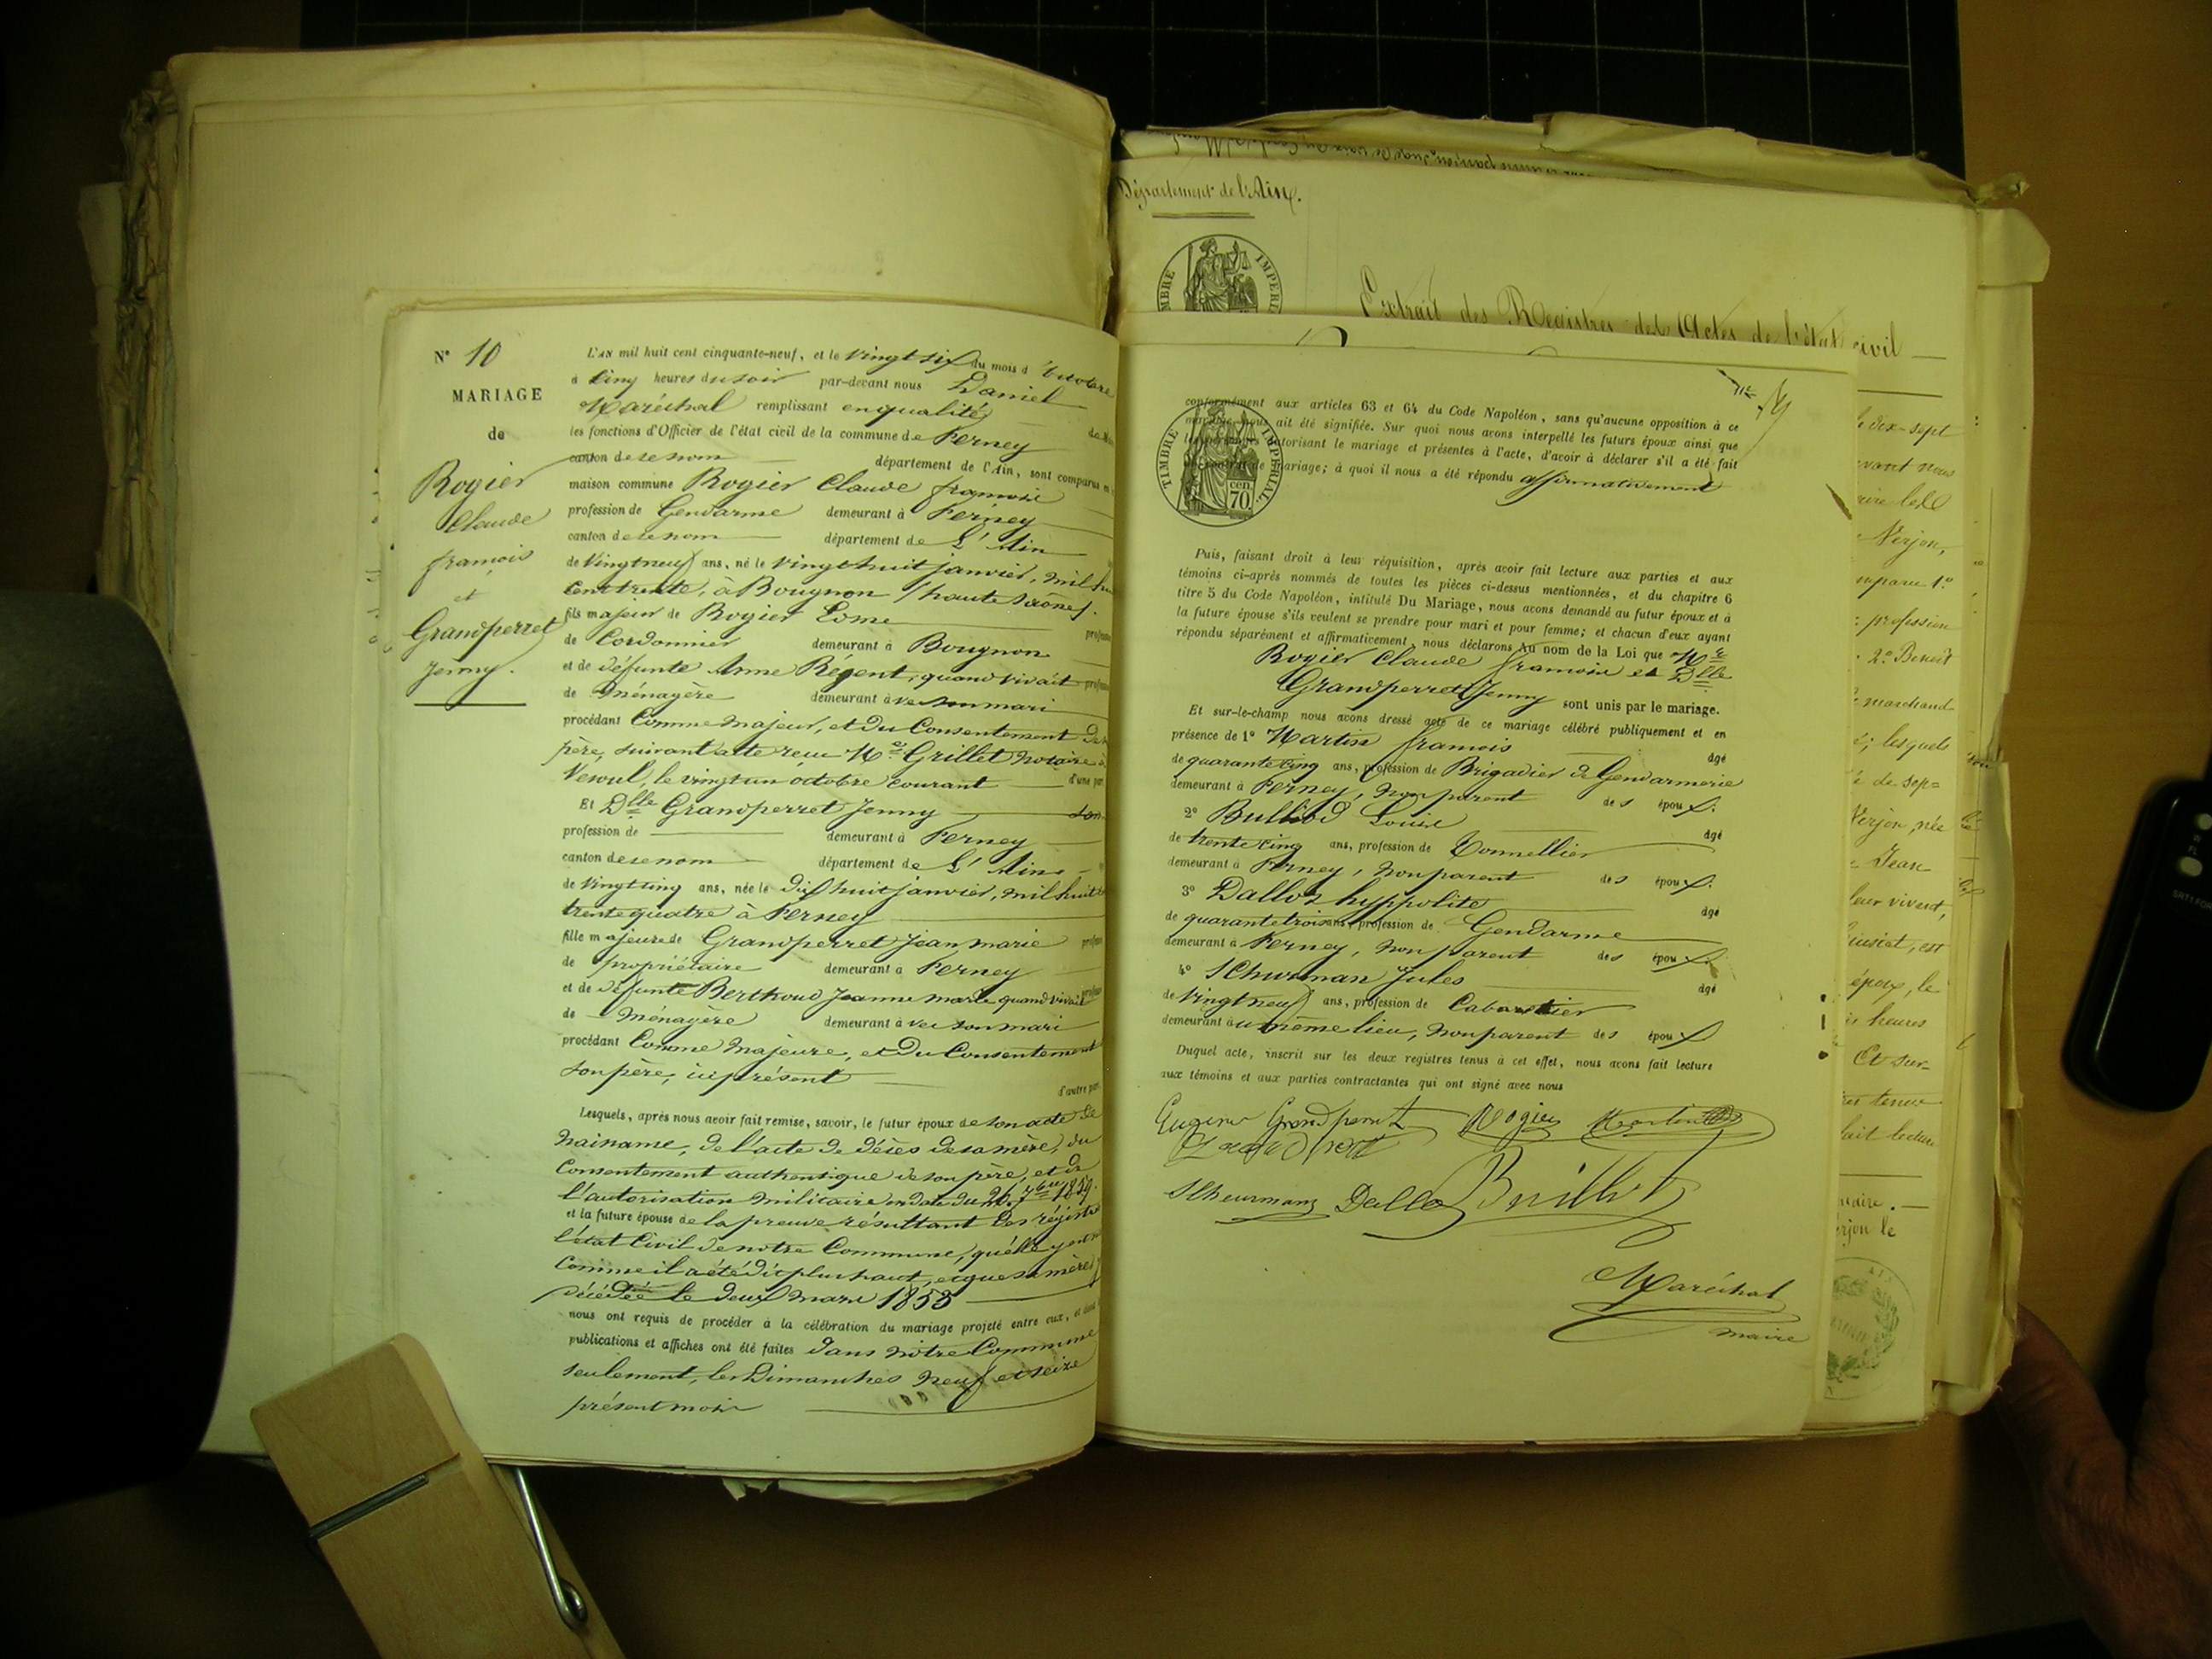 N° 10
MARIAGE
de
Rogier
Claude
françois
et
Grandperret
Jenny.
L'AN mil huit cent cinquante-neuf, et le vingt six du mois d'Octobre
à Cinq heures du soir par-devant nous Daniel
Maréchal remplissant en qualité
les fonctions d'Officier de l'état civil de la commune de Ferney
canton de ce nom département de l'Ain, sont comparus en
maison commune Rogier Claude françois
profession de Gendarme demeurant à Ferney
canton de ce nom département de L'Ain
de Vingt neuf ans, né le vingt huit janvier, mil hu
cent trente, à Bougnon (haute Saône).
fils majeur de Rogier Esme
de Cordonnier demeurant à Bougnon
et de défunte Anne Régent, quand vivait
de Ménagère demeurant avec son mari
procédant Comme majeur, et du Consentement de
père, suivant acte reçu Me Grillet notaire à
Vesoul, le vingt un octobre courant d'une part
Et Dlle Grandperret Jenny
profession de demeurant à Ferney
canton de ce nom département de L'Ain
de Vingt cinq ans, née le dix huit janvier, mil huit
trente quatre à Ferney
fille majeure de Grandperret Jean marie
de propriétaire demeurant à Ferney
et de défunte Berthoud Jeanne marie quand vivait
de Ménagère demeurant avec son mari
procédant Comme majeure, et du Consentement
son père, ici présent
d'autre part
Lesquels, après nous avoir fait remise, savoir, le futur époux de son acte de
naissance, de l'acte de décès de sa mère, du
Consentement authentique de son père, et de
l'autorisation militaire en date du 26 7bre 1859.
et la future épouse de la preuve résultant des régistres
l'état Civil de notre Commune, qu'elle y est
Comme il a été dit plus haut, et que sa mère
décédée le deux mars 1853
nous ont requis de procéder à la célébration du mariage projeté entre eux, et dont
publications et affiches ont été faites dans notre Commune
seulement, les Dimanches neuf et seize
présent mois
Département de l'Ain.
TIMBRE IMPERIAL
Extrait des Registres des Actes de l'état civil
conformément aux articles 63 et 64 du Code Napoléon, sans qu'aucune opposition à ce
ait été signifiée. Sur quoi nous avons interpellé les futurs époux ainsi que
autorisant le mariage et présentes à l'acte, d'avoir à déclarer s'il a été fait
mariage; à quoi il nous a été répondu affirmativement
TIMBRE IMPERIAL.
70. cen.
Puis, faisant droit à leur réquisition, après avoir fait lecture aux parties et aux
témoins ci-après nommés de toutes les pièces ci-dessus mentionnées, et du chapitre 6
titre 5 du Code Napoléon, intitulé Du Mariage, nous avons demandé au futur époux et à
la future épouse s'ils veulent se prendre pour mari et pour femme; et chacun d'eux ayant
répondu séparément et affirmativement, nous déclarons Au nom de la Loi que Mr
Rogier Claude françois et Dlle
Grandperret Jenny sont unis par le mariage.
Et sur-le-champ nous avons dressé acte de ce mariage célébré publiquement et en
présence de 1° Martin françois âgé
de quarante cinq ans, profession de Brigadier de Gendarmerie
demeurant à Ferney, non parent des époux.
2° Bulliod Louis âgé
de trente cinq ans, profession de Tonnellier
demeurant à Ferney, non parent des époux.
3° Dalloz hyppolite âgé
de quarante trois ans, profession de Gendarme
demeurant à Ferney, non parent des époux.
4° Schurman Jules âgé
de vingt neuf ans, profession de Cabaretier
demeurant au même lieu, non parent des époux
Duquel acte, inscrit sur les deux registres tenus à cet effet, nous avons fait lecture
aux témoins et aux parties contractantes qui ont signé avec nous
Eugenie Grandperret Rogier Martin
Scheurmann Dalloz Bulliod
Maréchal
maire
le dix-sept
Verjon,
profession
2° Benoit
marchand
lesquels
de sep=
Verjon, née
Jean
époux, le
heures
Et sur-
tenus
fait lecture